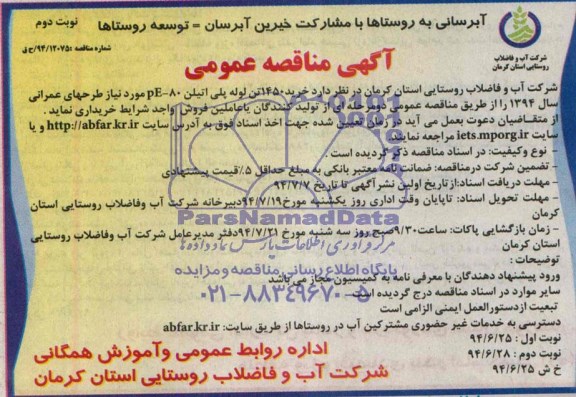 نوبت دوم
آبرسانی به روستاها با مشارکت خیرین آبرسان = توسعه روستاها
شماره مناقصه :۹۴/۱۲۰۷۵/ح ق
شرکت آب و فاضلاب
روستایی استان کرمان
آگهی مناقصه عمومی
شرکت آب و فاضلاب روستایی استان کرمان در نظر دارد خرید۱۴۵۰تن لوله پلی اتیلن pE-۸۰ مورد نیاز طرحهای عمرانی
سال ۱۳۹۴ را از طریق مناقصه عمومی دومرحله ای از تولید کنندگان یاعاملین فروش واجد شرایط خریداری نماید .
از متقاضیان دعوت بعمل می آید در زمان تعیین شده جهت اخذ اسناد فوق به آدرس سایت http://abfar.kr.ir و یا
سایت iets.mporg.ir مراجعه نمایند.
- نوع وکیفیت: در اسناد مناقصه ذکر گردیده است .
- تضمین شرکت درمناقصه: ضمانت نامه معتبر بانکی به مبلغ حداقل ۵٪قیمت پیشنهادی
- مهلت دریافت اسناد:ازتاریخ اولین نشرآگهی تا تاریخ ۹۴/۷/۷
- مهلت تحویل اسناد: تاپایان وقت اداری روز یکشنبه مورخ۹۴/۷/۱۹دبیرخانه شرکت آب وفاضلاب روستایی استان
کرمان
- زمان بازگشایی پاکات: ساعت۹/۳۰صبح روز سه شنبه مورخ ۹۴/۷/۲۱دفتر مدیرعامل شرکت آب وفاضلاب روستایی
استان کرمان
توضیحات :
ورود پیشنهاد دهندگان با معرفی نامه به کمیسیون مجاز می باشد
سایر موارد در اسناد مناقصه درج گردیده است
تبعیت ازدستورالعمل ایمنی الزامی است
دسترسی به خدمات غیر حضوری مشترکین آب در روستاها از طریق سایت: abfar.kr.ir
نوبت اول : ۹۴/۶/۲۵
نوبت دوم : ۹۴/۶/۲۸
خ ش ۹۴/۶/۲۵
اداره روابط عمومی وآموزش همگانی
شرکت آب و فاضلاب روستایی استان کرمان
ParsNamadData
مرکز فرآوری اطلاعات پارس نماد داده ها
پایگاه اطلاع رسانی مناقصه و مزایده
۰۲۱-۸۸۳۴۹۶۷۰-۵